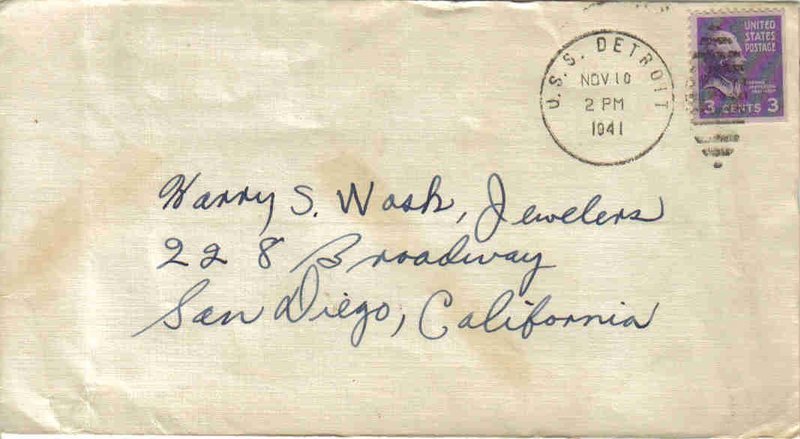 U.S.S. DETROIT
NOV. 10
2 PM
1941
UNITED
STATES
POSTAGE
3 CENTS 3
Harry S. Wosk, Jewelers
228 Broadway
San Diego, California